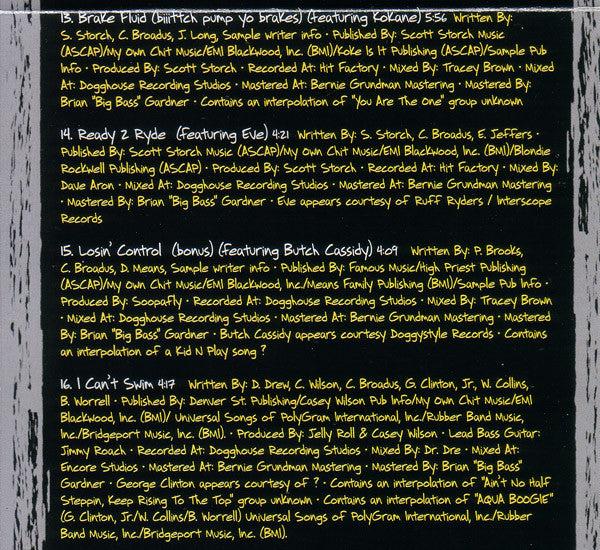 13. Brake Fluid (biiittch pump yo brakes) (featuring Kokane) 5:56 Written By:
S. Storch, C. Broadus, J. Long, Sample writer info • Published By: Scott Storch Music
(ASCAP)/My Own Chit Music/EMI Blackwood, Inc. (BMI)/Koke Is It Publishing (ASCAP)/Sample Pub
Info • Produced By: Scott Storch • Recorded At: Hit Factory • Mixed By: Tracey Brown • Mixed
At: Dogghouse Recording Studios • Mastered At: Bernie Grundman Mastering • Mastered By:
Brian "Big Bass" Gardner • Contains an interpolation of "You Are The One" group unknown
14. Ready 2 Ryde (featuring Eve) 4:21 Written By: S. Storch, C. Broadus, E. Jeffers •
Published By: Scott Storch Music (ASCAP)/My Own Chit Music/EMI Blackwood, Inc. (BMI)/Blondie
Rockwell Publishing (ASCAP) • Produced By: Scott Storch • Recorded At: Hit Factory • Mixed By:
Dave Aron • Mixed At: Dogghouse Recording Studios • Mastered At: Bernie Grundman Mastering
• Mastered By: Brian "Big Bass" Gardner • Eve appears courtesy of Ruff Ryders / Interscope
Records
15. Losin' Control (bonus) (featuring Butch Cassidy) 4:09 Written By: P. Brooks,
C. Broadus, D. Means, Sample writer info • Published By: Famous Music/High Priest Publishing
(ASCAP)/My Own Chit Music/EMI Blackwood, Inc./Means Family Publishing (BMI)/Sample Pub Info •
Produced By: Soopafly • Recorded At: Dogghouse Recording Studios • Mixed By: Tracey Brown
• Mixed At: Dogghouse Recording Studios • Mastered At: Bernie Grundman Mastering • Mastered
By: Brian "Big Bass" Gardner • Butch Cassidy appears courtesy Doggystyle Records • Contains
an interpolation of a Kid N Play song ?
16. I Can't Swim 4:17 Written By: D. Drew, C. Wilson, C. Broadus, G. Clinton, Jr., W. Collins,
B. Worrell • Published By: Denver St. Publishing/Casey Wilson Pub Info/My Own Chit Music/EMI
Blackwood, Inc. (BMI)/ Universal Songs of PolyGram International, Inc/Rubber Band Music,
Inc./Bridgeport Music, Inc. (BMI). • Produced By: Jelly Roll & Casey Wilson • Lead Bass Guitar:
Jimmy Roach • Recorded At: Dogghouse Recording Studios • Mixed By: Dr. Dre • Mixed At:
Encore Studios • Mastered At: Bernie Grundman Mastering • Mastered By: Brian "Big Bass"
Gardner • George Clinton appears courtesy of ? • Contains an interpolation of "Ain't No Half
Steppin, Keep Rising To The Top" group unknown • Contains an interpolation of "AQUA BOOGIE"
(G. Clinton, Jr./W. Collins/B. Worrell) Universal Songs of PolyGram International, Inc/Rubber
Band Music, Inc./Bridgeport Music, Inc. (BMI).